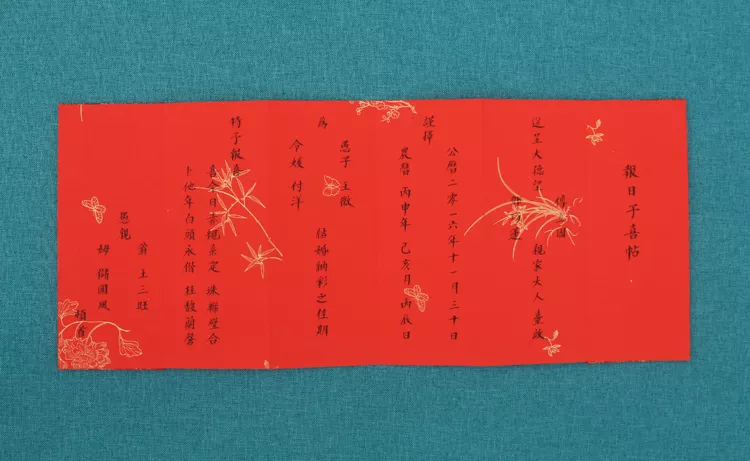 報日子喜帖
送呈大德望 親家大人 臺啟
謹擇
公曆二零一六年十一月三十日
農曆 丙申年 己亥月 丙辰日
為
愚子 王徽
令媛 付洋
結婚納彩之佳期
特予報喜
喜今日赤繩系定 珠聯璧合
卜他年白頭永偕 桂馥蘭馨
愚親
翁 王三旺
姆 儲圓鳳